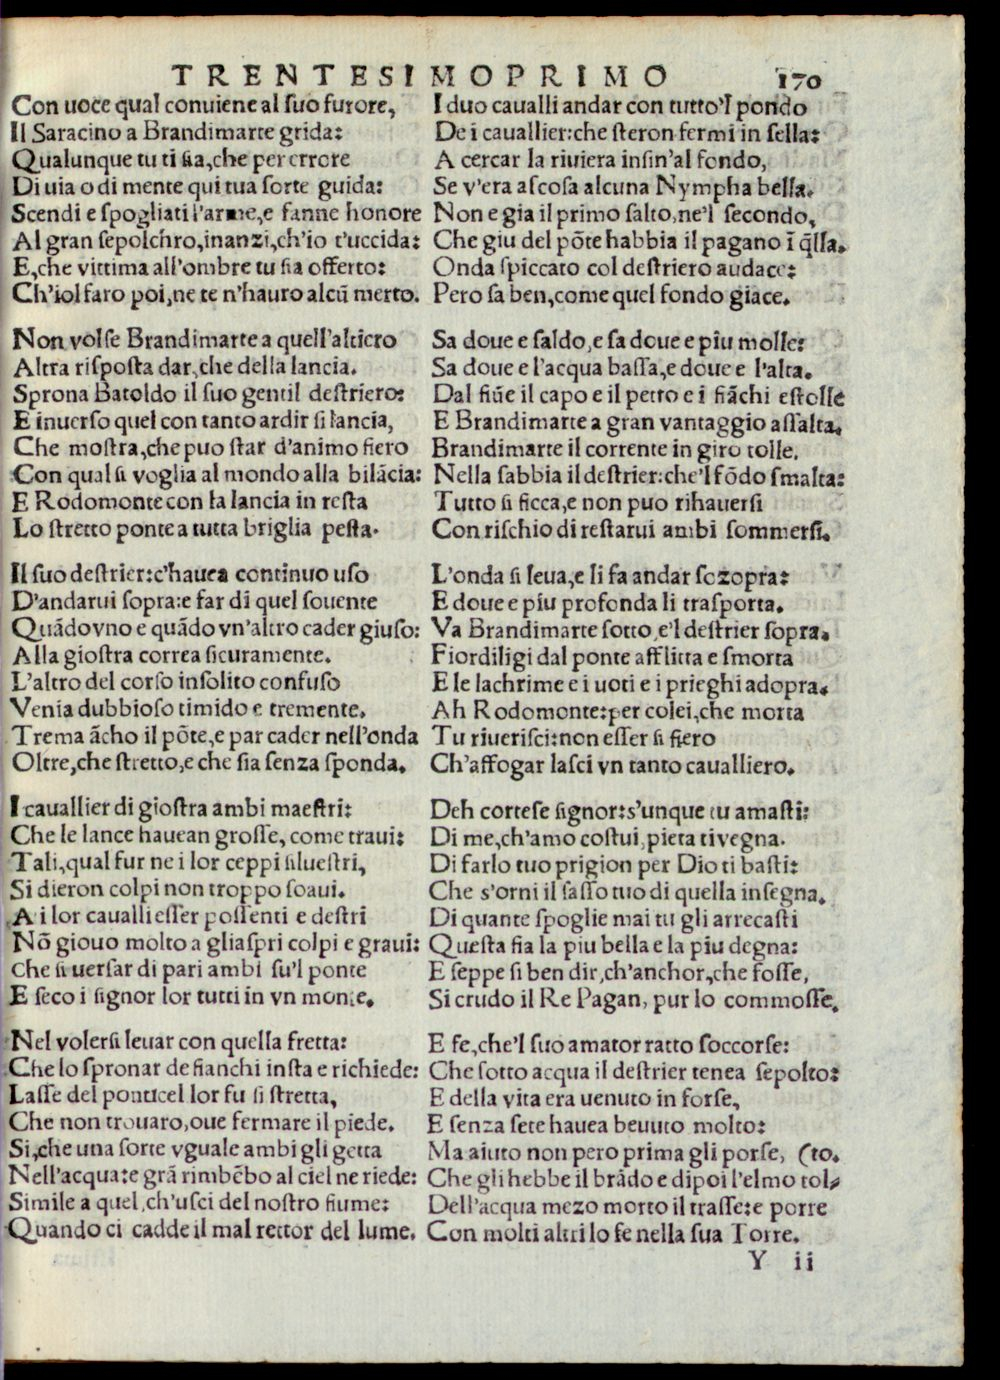 TRENTESIMOPRIMO 170
Con uoce qual conuiene al suo furore,
Il Saracino a Brandimarte grida:
Qualunque tu ti sia, che per errore
Di uia o di mente qui tua sorte guida:
Scendi e spogliati l'arme, e fanne honore
Al gran sepolchro, inanzi, ch'io t'uccida:
E, che vittima all'ombre tu sia offerto:
Ch'iol faro poi, ne te n'hauro alcũ merto.

Non volse Brandimarte a quell'altiero
Altra risposta dar, che della lancia.
Sprona Batoldo il suo gentil destriero:
E inuerso quel con tanto ardir si lancia,
Che mostra, che puo star d'animo fiero
Con qual si voglia al mondo alla bilãcia:
E Rodomonte con la lancia in resta
Lo stretto ponte a tutta briglia pesta.

Il suo destrier: c'hauea continuo uso
D'andarui sopra: e far di quel souente
Quãdo vno e quãdo vn'altro cader giuso:
Alla giostra correa sicuramente.
L'altro del corso insolito confuso
Venia dubbioso timido e tremente.
Trema ãcho il põte, e par cader nell'onda
Oltre, che stretto, e che sia senza sponda.

I cauallier di giostra ambi maestri:
Che le lance hauean grosse, come traui:
Tali, qual fur ne i lor ceppi siluestri,
Si dieron colpi non troppo soaui.
A i lor caualli esser possenti e destri
Nõ giouo molto a gli aspri colpi e graui:
Che si uersar di pari ambi su'l ponte
E seco i signor lor tutti in vn monte.

Nel volersi leuar con quella fretta:
Che lo spronar de fianchi insta e richiede:
L'asse del ponticel lor fu si stretta,
Che non trouaro, oue fermare il piede.
Si, che una sorte vguale ambi gli getta
Nell'acqua: e grã rimbẽbo al ciel ne riede:
Simile a quel, ch'usci del nostro fiume:
Quando ci cadde il mal rettor del lume.

I duo caualli andar con tutto'l pondo
De i cauallier: che steron fermi in sella:
A cercar la riuiera insin'al fondo,
Se v'era ascosa alcuna Nympha bella.
Non e gia il primo salto, ne'l secondo,
Che giu del põte habbia il pagano ĩ q̃lla.
Onda spiccato col destriero audace:
Pero sa ben, come quel fondo giace.

Sa doue e saldo, e sa doue e piu molle:
Sa doue e l'acqua bassa, e doue e l'alta.
Dal fiũe il capo e il petto e i fiãchi estolle
E Brandimarte a gran vantaggio assalta.
Brandimarte il corrente in giro tolle.
Nella sabbia il destrier: che'l fõdo smalta:
Tutto si ficca, e non puo rihauersi
Con rischio di restarui ambi sommersi.

L'onda si leua, e li fa andar sozopra:
E doue e piu profonda li trasporta.
Va Brandimarte sotto, e'l destrier sopra.
Fiordiligi dal ponte afflitta e smorta
E le lachrime e i uoti e i prieghi adopra.
Ah Rodomonte: per colei, che morta
Tu riuerisci: non esser si fiero
Ch'affogar lasci vn tanto caualliero.

Deh cortese signor: s'unque tu amasti:
Di me, ch'amo costui, pieta ti vegna.
Di farlo tuo prigion per Dio ti basti:
Che s'orni il sasso tuo di quella insegna.
Di quante spoglie mai tu gli arrecasti
Questa fia la piu bella e la piu degna:
E seppe si ben dir, ch'anchor, che fosse,
Si crudo il Re Pagan, pur lo commosse.

E fe, che'l suo amator ratto soccorse:
Che sotto acqua il destrier tenea sepolto:
E della vita era uenuto in forse,
E senza sete hauea beuuto molto:
Ma aiuto non pero prima gli porse, (to.
Che gli hebbe il brãdo e dipoi l'elmo tol-
Dell'acqua mezo morto il trasse: e porre
Con molti altri lo fe nella sua Torre.
Y ii